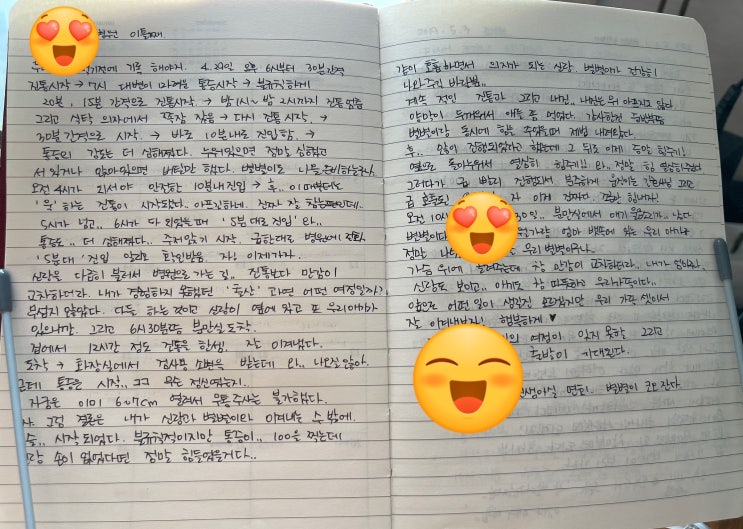 병원 이틀째
기록 해야지. 4.22일 오후 6시부터 30분 간격
진통시작 → 7시 대변이 마려운 통증시작 → 불규칙하게
20분, 15분 간격으로 진통시작. → 밤 11시~ 밤 2시까지 진통 멈춤
그리고 식탁 의자에서 쪽잠 잤음 → 다시 진통 시작. →
30분 간격으로 시작. → 바로 10분내로 진입함. →
통증의 강도는 더 심해졌다. 누워있으면 정말 심하고
서 있거나 앉아있으면 버틸만 했다. 별별이도 나올 준비하는구나
오전 4시가 되서야 안정한 10분내 진입 → 후.. 이때부터도
'윽' 하는 진통이 시작되었다. 아프긴하네. 진짜 잘 참는편인데.
5시가 넘고.. 6시가 다 되었을때 '5분대 진입' 와..
통증도.. 더 심해졌다.. 주저앉기 시작. 급한대로 병원에 전화
'5분대' 진입 알리고 확인받음. 자! 이제가자.
신랑을 다급히 불러서 병원으로 가는 길.. 진통보다 만감이
교차하더라. 내가 경험하지 못했던 '출산' 과연 어떤 여정일까?
무섭지 않았다. 다들 하는 것이고 신랑이 옆에 있고 또 우리아이가
있으니깐. 그리고 6시 30분쯤 분만실 도착.
집에서 12시간 정도 진통을 한셈. 잘 이겨냈다.
도착 → 화장실에서 검사용 소변을 받는데 와.. 나오질 않아.
근데 통증은 시작.. ㅋㅋ 웃픈 정신없는지.
자궁은 이미 6~7cm 열려서 무통주사는 불가했다.
그럼 결론은 내가 신랑과 별별이와 이겨내는 수 밖에.
시작되었다. 불규칙적이지만 통증이.. 100을 찍는데
손이 없었다면 정말 힘들었을거다..
같이 호흡하면서 의지가 되는 신랑. 별별이가 건강히
나와주길 바랄뿐..
계속 적인 진통과 그리고 내진.. 내진은 뭐 아프지도 않다
양막이 두꺼워서 애를 좀 먹었다. 감사하게도
별별이랑 동시에 힘을 주었을때 제법 내려왔다.
후.. 많이 진행되었다고 했는데 그 뒤로 이제 정말 힘주기!
옆으로 돌아누워서 열심히 힘주기! 와.. 정말 열심히주었다
그러다가 급 빨리 진행되서 분주하게 움직이는 간호사님 그리고
자 이제 진짜다. 끝까지 힘내자!
오전 10시 분만실에서 애기 울음소리가.. 났다.
별별이다 엄마 뱃속에 있는 우리 아기가
정말 우리 별별이구나..
가슴 위에 올려주는데 참 만감이 교차하더라.. 내가 엄마라..
신랑도 보이고.. 아기도 참 따뜻하고 우리가족이다..
앞으로 어떤 일이 생길진 모르겠지만 우리 가족 셋이서
잘 이겨내보자! 행복하게 ♥
의 여정이 잊지 못할 그리고
기대된다.
신생아실 면회. 별별이 코 잔다